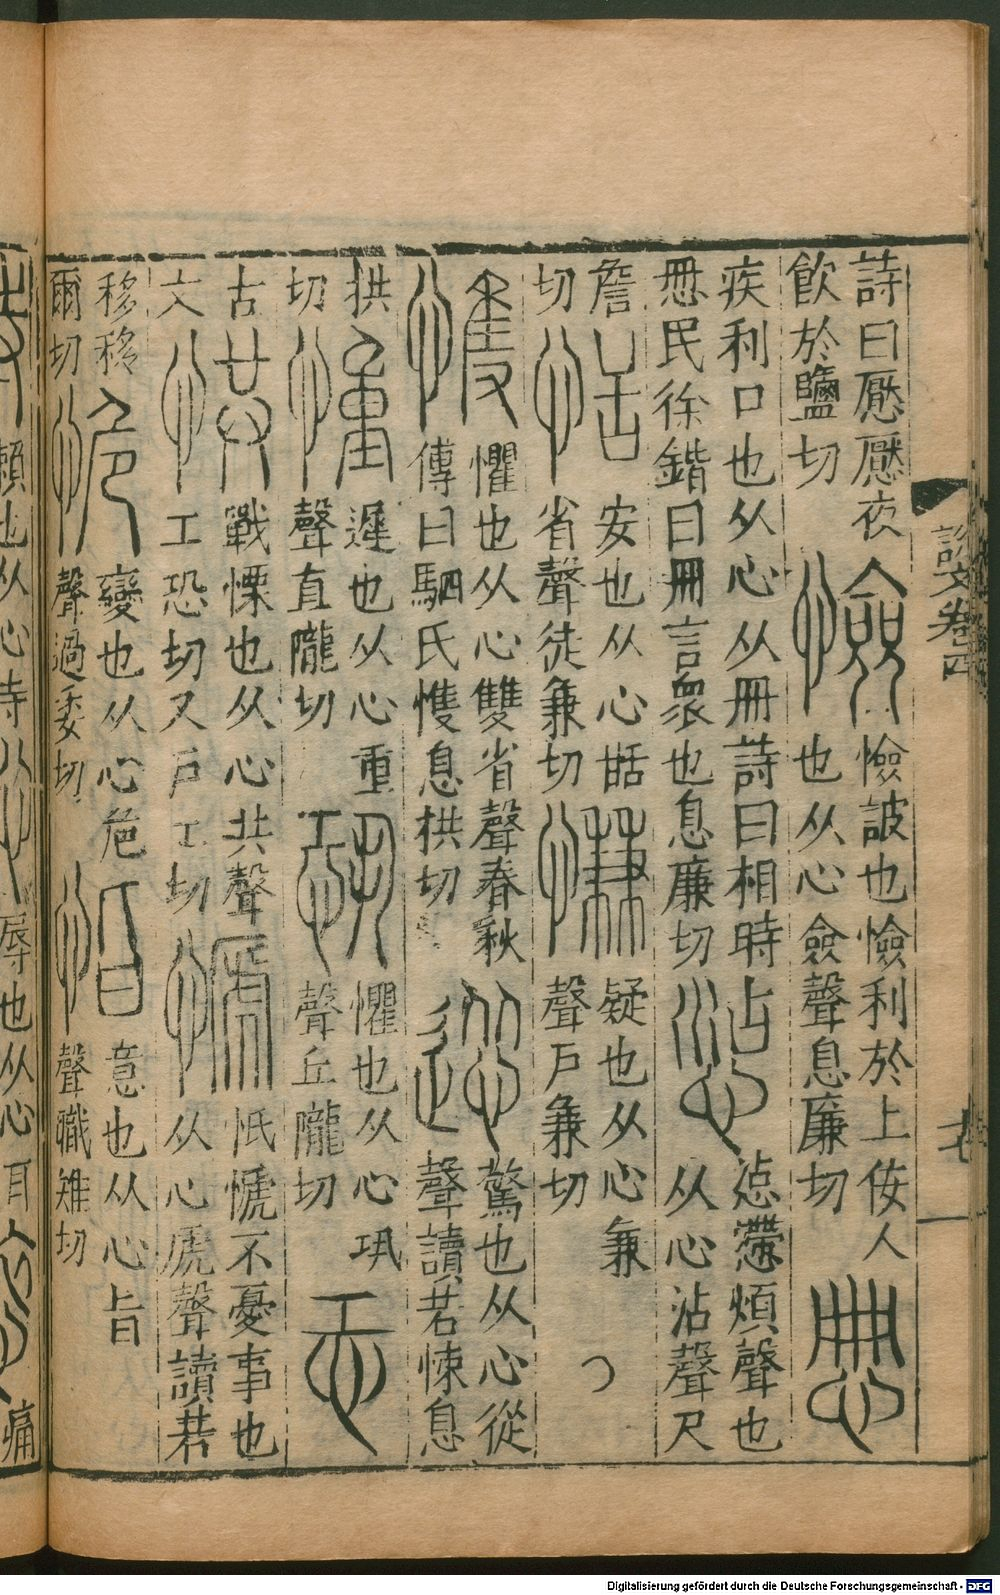 詩曰懕懕夜
飲於鹽切
憸
憸詖也憸利於上佞人
也从心僉聲息廉切
疾利口也从心从冊詩曰相時
民徐鍇曰冊言衆也息廉切
惉
惉懘煩聲也
从心沾聲尺
詹
切
恬
安也从心甛
省聲徒兼切
慊
疑也从心兼
聲戶兼切
愯
懼也从心雙省聲春秋
傳曰駟氏愯息拱切
慫
驚也从心從
聲讀若悚息
拱
切
㣫
遲也从心重
聲直隴切
恐
懼也从心巩
聲丘隴切
古
文
㤨
戰慄也从心共聲
工恐切又戶工切
㥴
忯㥴不憂事也
从心虒聲讀若
移移
爾切
恑
變也从心危
聲過委切
恉
意也从心旨
聲職雉切
說文卷四
賴也从心寺
辱也从心耳
痛
Digitalisierung gefördert durch die Deutsche Forschungsgemeinschaft - DFG